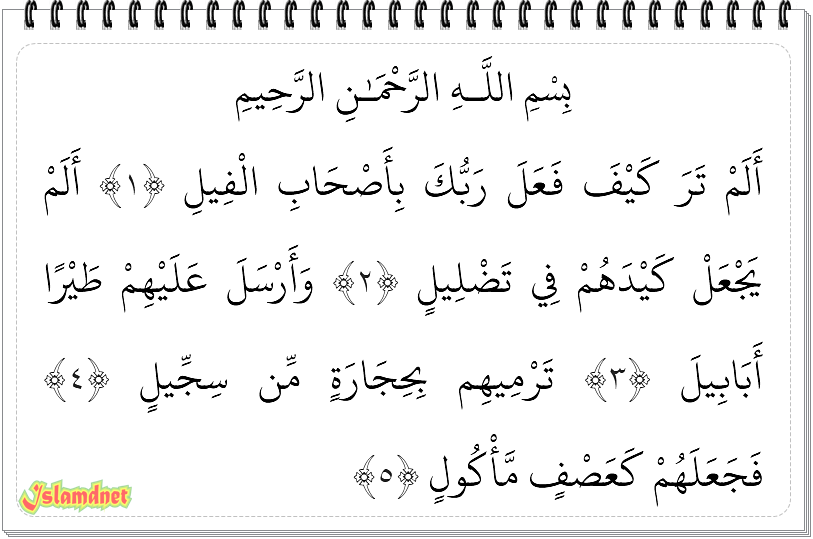 بِسْمِ اللَّـهِ الرَّحْمَـٰنِ الرَّحِيمِ
أَلَمْ تَرَ كَيْفَ فَعَلَ رَبُّكَ بِأَصْحَابِ الْفِيلِ ﴿١﴾ أَلَمْ
يَجْعَلْ كَيْدَهُمْ فِي تَضْلِيلٍ ﴿٢﴾ وَأَرْسَلَ عَلَيْهِمْ طَيْرًا
أَبَابِيلَ ﴿٣﴾ تَرْمِيهِم بِحِجَارَةٍ مِّن سِجِّيلٍ ﴿٤﴾
فَجَعَلَهُمْ كَعَصْفٍ مَّأْكُولٍ ﴿٥﴾
Islamdnet